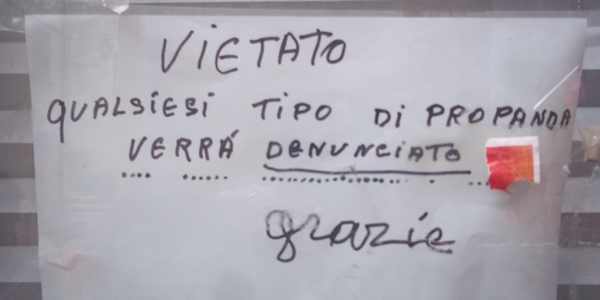 VIETATO
QUALSIESI TIPO DI PROPANDA
VERRÁ DENUNCIATO
grazie